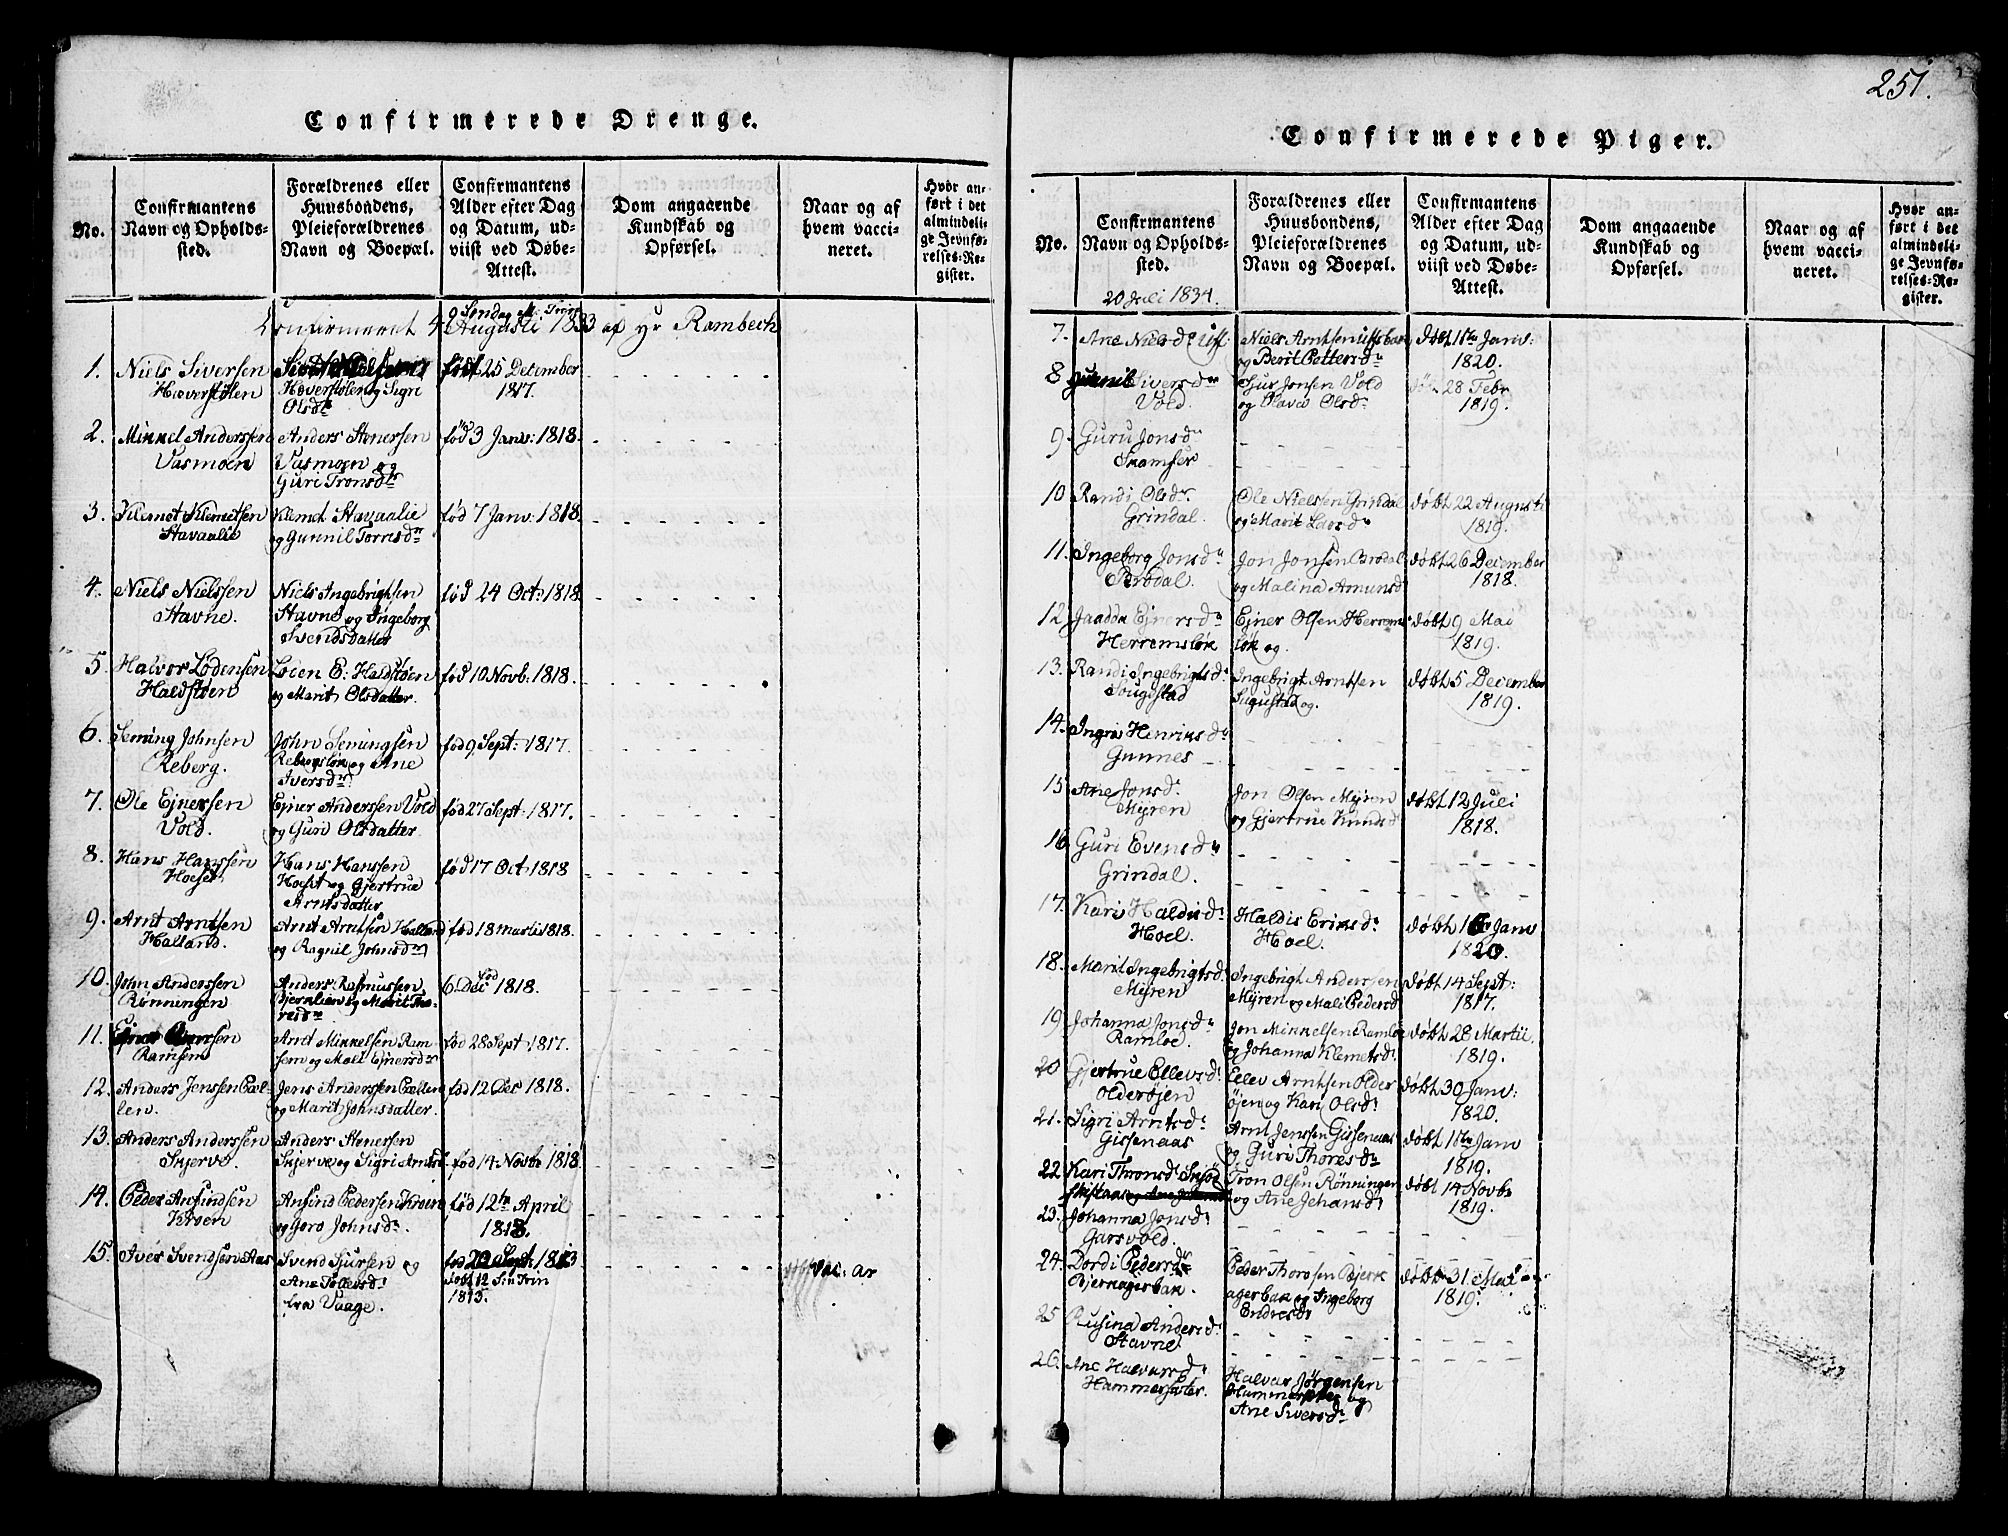 251.
Confirmerede Drenge.
No.
Confirmantens
Navn og Opholds-
sted.
Forældrenes eller
Huusbondens,
Pleieforældrenes
Navn og Boepæl.
Confirmantens
Alder efter Dag
og Datum, ud-
viist ved Døbe-
Attest.
Dom angaaende
Kundskab og
Opførsel.
Naar og af
hvem vacci-
neret.
Hvor an-
ført i det
almindeli-
ge Jevnfø-
relses-Re-
gister.
Confirmeret 4 Augusti 1833 af Hr Rambech
1. Niels Siversen
Hæverstølen
Hæverstølen og Sigri
Olsdr
født 25 December
1817.
2. Mikkel Anderssen
Vasmoen
Anders Stenersen
Vasmoen og
Guri Tronsdr
fød 3 Janv: 1818.
3. Klemet Klemetsen
Stavaalie
Klemet Stavaalie
og Gunnil Torrisdr
fød 7 Janv: 1818.
4. Niels Nielssen
Stavne.
Niels Ingebrigtsen
Stavne og Ingeborg
Svendsdatter
fød 24 Oct: 1818
5. Halvor Lødensen
Haldstøen
Løen E: Haldstøen
og Marit Olsdatter.
fød 10 Novb: 1818.
6. Seming Johnsen
Reberg.
John Semingsen
Rebergsløk og Ane
Iversdr
fød 9 Sept: 1817.
7. Ole Ejnersen
Vold.
Ejner Anderssen Vold
og Guri Olsdatter
fød 27 Sept: 1817.
8. Hans Hanssen
Hoeset
Hans Hanssen
Hoeset og Gjertrue
Arntsdatter
fød 17 Oct: 1818
9. Arnt Arntsen
Halland.
Arnt Arntsen Halland
og Ragnil Johnsdr
fød 18 Marti 1818.
10. John Anderssen
Rønningen
Anders Rasmussen
Bjerklien og Marit Tho-
resdr
fød
6 Dec 1818.
11.
Ramsem
Arnt Mikkelsen Ram
sem og Mali Ejnersdr
fød 28 Sept 1817.
12. Anders Jenssen Cæl-
len.
Jens Anderssen Cællen
og Marit Johnsdatter.
fød 12 Dec 1818.
13. Anders Anderssen
Skjerve.
Anders Stenersen
Skjerve og Sigri Arntsd
fød 14 Novbr 1818
14. Peder Ansindsen
Kroen
Ansind Pedersen Kroen
og Goro Johnsdr
fød 12te April
1818.
15. Iver Svendsen Aas
Svend Sjursen og
Ane Tollevsdr
fra Vaage.
fød 20 Sept: 1813
Døbt 12 S in Trin
1813.
vac: ar
Confirmerede Piger.
No.
Confirmantens
Navn og Opholds-
sted.
Forældrenes eller
Huusbondens,
Pleieforældrenes
Navn og Boepæl.
Confirmantens
Alder efter Dag
og Datum, ud-
viist ved Døbe-
Attest.
Dom angaaende
Kundskab og
Opførsel.
Naar og af
hvem vacci-
neret.
Hvor an-
ført i det
almindeli-
ge Jevnfø-
relses-Re-
gister.
20 Juli 1834.
7. Ane Nielsdr
Niels Arntsen
og Berit Pettersdr
Døbt 1ste Janv:
1820.
8 Gunnil Siversdr
Vold.
Sjur Jonsen Vold
og Olava Olsdr
28 Febr
1819.
9. Guru Jonsdr
Skamfer
10 Randi Olsdr.
Grindal.
Ole Nielsen Grindal
og Marit Larsdr
døbt 22 Augusti
1819.
11. Ingeborg Jonsdr
Brødal.
Jon Jonsen Brødal
og Malina Amundsd
døbt 26 December
1818.
12. Jaadda Ejnersdr
Herremsløk
Ejner Olsen Herrems
løk og.
døbt 9 Mai
1819.
13. Randi Ingebrigtsdr
Sougstad
Ingebrigt Arntsen
Sugustad og.
døbt 5 December
1819.
14. Ingri Henriksdr
Gunnes
15 Ane Jonsdr
Mÿren
Jon Olsen Mÿren
og Gjertrue Knudsd
døbt 12 Juli
1818.
16 Guri Evensdr
Grindal.
17. Kari Haldisdr
Hoel.
Haldis Eriksdr
Hoel.
døbt 16 Janv
1820.
18. Marit Ingebrigtsdr
Mÿren
Ingebrigt Anderssen
Mÿren og Mali Pedersd
døbt 14 Sept:
1817.
19. Johanna Jonsdr
Ramloe.
Jon Mikkelsen Ramloe
og Johanna Klemetsdr
døbt 28 Martii
1819.
20 Gjertrue Ellevsdr
Olderøjen
Ellev Arntsen Older
øjen og Kari Olsdr
døbt 30 Janv:
1820.
21. Sigri Arntsdr
Gissenaas
Arnt Jenssen Gissenaas
og Guri Thoresdr
døbt 1ste Janv
1819.
22 Kari Thronsdr Skjød
skiftaas
Tron Olsen Rønningen
og Ane Jehansdr
døbt 14 Novbr
1819.
23. Johanna Jonsdr
Garsvold.
24. Dordi Pedersdr
Bjerkagerbak
Peder Thoresen Bjerk
agerbak og Ingeborg
Endresdr
døbt 31 Mai
1819.
25 Rusina Andersdr
Stavne
26. Ane Halvarsdr
Hammersæter.
Halvar Jørgensen
Hammersæter og
Ane Siversdr